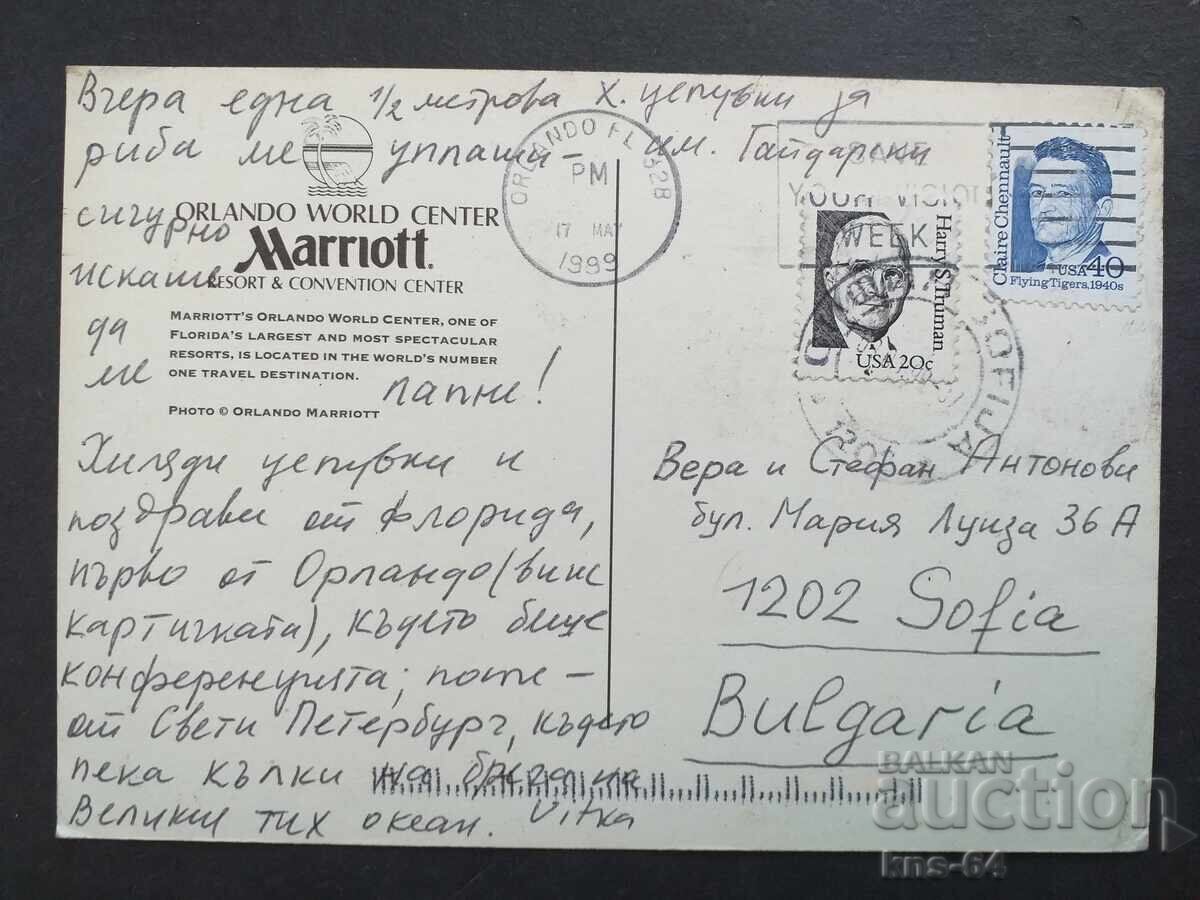 Вчера една 1/2 метрова х. цепувки за
риба ме уплаши - им. Гайдарски
сигурно
искаше
да
ме папне!
ORLANDO WORLD CENTER
Marriott.
RESORT & CONVENTION CENTER
MARRIOTT'S ORLANDO WORLD CENTER, ONE OF
FLORIDA'S LARGEST AND MOST SPECTACULAR
RESORTS, IS LOCATED IN THE WORLD'S NUMBER
ONE TRAVEL DESTINATION.
PHOTO © ORLANDO MARRIOTT
Хиляди цепувки и
поздрави от Флорида,
първо от Орландо (виж
картичката), където беше
конференцията; после -
от Свети Петербург, където
пека кълки на брега на
Велики тих океан. Vitka
ORLANDO FL 328
PM
17 MAY
1999
YOUR VISION
WEEK
Harry S. Truman
USA 20c
Claire Chennault
USA 40
Flying Tigers, 1940s
SOFIJA
Вера и Стефан Антонови
бул. Мария Луиза 36 А
1202 Sofia
Bulgaria
BALKAN
auction
kns-64